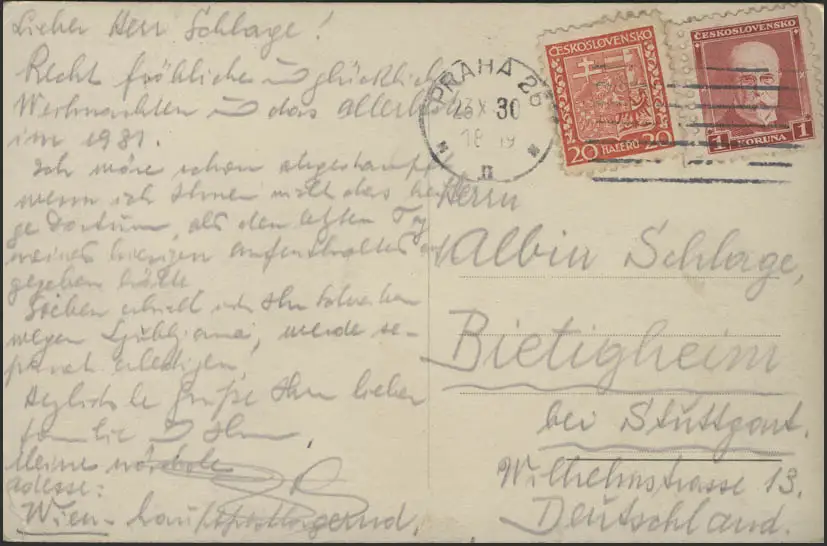 Lieber Herr Schlage!
Recht fröhliche u glückliche
Weihnachten u das allerbeste
im 1931.
Ich wäre schon abgestempelt
wenn ich Ihnen nicht das heuti-
ge Datum, als den letzten Tag
meines hiesigen Aufenthaltes an-
gegeben hätte
Soeben erhielt ich Ihr Schreiben
wegen Ljubljana, werde se-
parat erledigen.
Herzliche Grüße Ihrer lieben
Familie u Ihnen,
Meine nächste
Adresse:
Wien- Hauptpostlagernd.
PRAHA
23 X 30
18 19
II
ČESKOSLOVENSKO
20 HALÉŘŮ 20
ČESKOSLOVENSKO
1 KORUNA 1
Herrn
Albin Schlage,
Bietigheim
bei Stuttgart.
Wilhelmstrasse 13.
Deutschland.